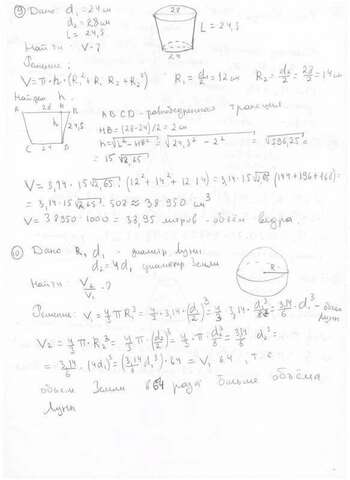 9) Дано: d₁ = 24 см
d₂ = 28 см
L = 24,5
Найти: V - ?
28
L = 24,5
24
Решение:
V = π · h · (R₁² + R₁ R₂ + R₂²) R₁ = d₁/2 = 12 см R₂ = d₂/2 = 28/2 = 14 см
Найдем h.
28 H
h 24,5
C 24
ABCD - равнобедренная трапеция
HB = (28-24)/2 = 2 см
h = √(L² - HB²) = √(24,5² - 2²) = √596,25 =
= 15 √2,65
V = 3,14 · 15 √2,65 (12² + 14² + 12·14) = 3,14 · 15 √2,65 (144 + 196 + 168) =
= 3,14 · 15 √2,65 · 508 ≈ 38 950 см³
V = 38950 : 1000 = 38,95 литров - объём ведра.
10) Дано: d₁ - диаметр Луны
d₂ = 4d₁ диаметр Земли
Найти: V₂/V₁ - ?
R
Решение: V₁ = 4/3 π R³ = 4/3 · 3,14 · (d₁/2)³ = 4/3 · 3,14 · d₁³/8 = 3,14/6 · d₁³ - объём Луны
V₂ = 4/3 π · R₂³ = 4/3 π · (d₂/2)³ = 4/3 · π · d₂³/8 = 3,14/6 d₂³ =
= 3,14/6 · (4d₁)³ = (3,14/6 d₁³) · 64 = V₁ 64, т.е.
объем Земли в 64 раза больше объёма
Луны